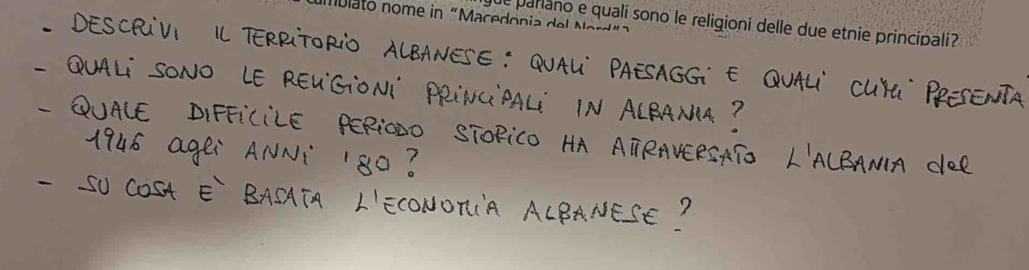 nome in "Macedonia del Nord"? parlano e quali sono le religioni delle due etnie principali?
- DESCRIVI IL TERRITORIO ALBANESE: QUALI PAESAGGI E QUALI CLIMI PRESENTA
- QUALI SONO LE RELIGIONI PRINCIPALI IN ALBANIA?
- QUALE DIFFICILE PERIODO STORICO HA ATTRAVERSATO L'ALBANIA del
1946 agli ANNI '80?
- SU COSA E' BASATA L'ECONOMIA ALBANESE?